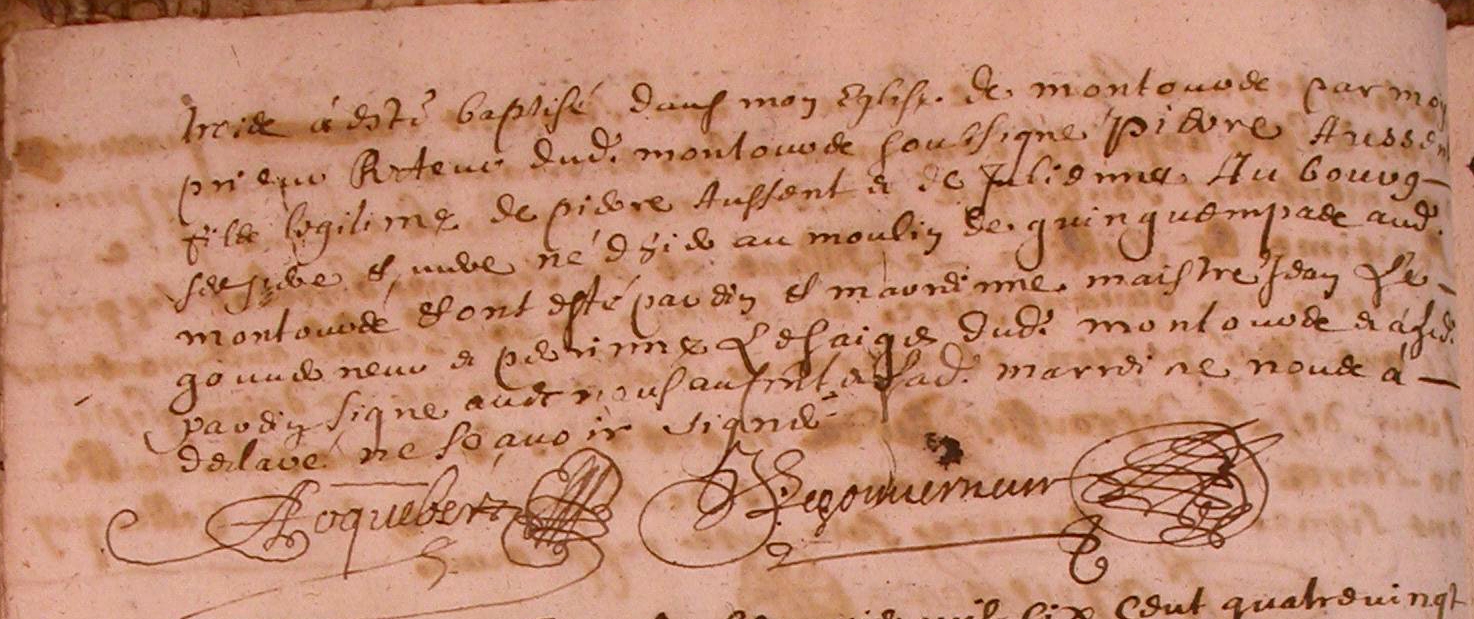 troide a esté baptisé dans mon Eglise de montourde par moy
prieur Recteur dud. montourde soubsigne pierre Aussent
fils legitime de pierre Aussent et de Julienne Au bourg –
sa espouse né d'hier au moulin de quinquempade aud.
montourde et ont esté pardin et mardinne maistre Jean Le –
gouuerneur et perinne Lesaige dud. montourde et a led.
pardin signe auec nous lad. mardine nous a –
declaré ne sçauoir signé
Roquebert Legouuerneur
mil six Cent quatreuingt